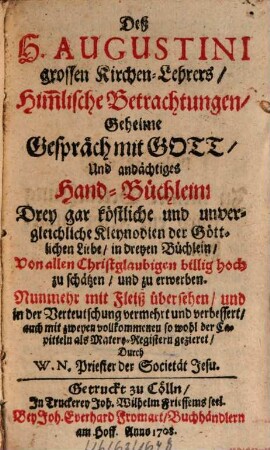 Deß
H. AUGUSTINI
grossen Kirchen-Lehrers /
Him̃lische Betrachtungen /
Geheime
Gespräch mit GOTT /
Und andächtiges
Hand-Büchlein
Drey gar köstliche und unver-
gleichliche Kleynodien der Gött-
lichen Liebe / in dreyen Büchlein /
Von allen Christglaubigen billig hoch
zu schätzen / und zu erwerben.
Nunmehr mit Fleiß übersehen / und
in der Verteutschung vermehrt und verbessert /
auch mit zweyen vollkommenen so wohl der Ca-
pitteln als Matery-Registern gezieret /
Durch
W. N. Priester der Societät Jesu.
Getruckt zu Cölln /
In Truckerey Joh. Wilhelm Friessems seel.
Bey Joh. Everhard Fromart / Buchhändlern
am Hoff. Anno 1708.